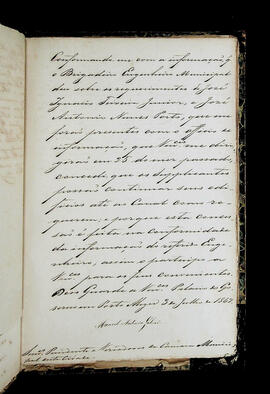 Conformando me com a informação q̃
o Brigadeiro Engenheiro Municipal
deu sobre os requerimentos de José
Ignacio Teixeira Junior, e José
Antonio Nunes Porto, que me
forão presentes com o officio de
informação, que Vm.ces me diri-
girão em 25 de mez passado,
concedo que os supplicantes
possão continuar seus edi-
ficios até ao Canal como re-
querem; e porque esta conces-
são é feita na conformidade
da informação do referido Enge-
nheiro, assim o participo a
Vm.ces para os fins convenientes.
Deos Guarde a Vm.ces Palacio do Go-
verno em Porto Alegre 3 de Julho de 1832.
Manoel
Snr.es Presidente e Vereadores da Camara Munici-
pal desta Cidade